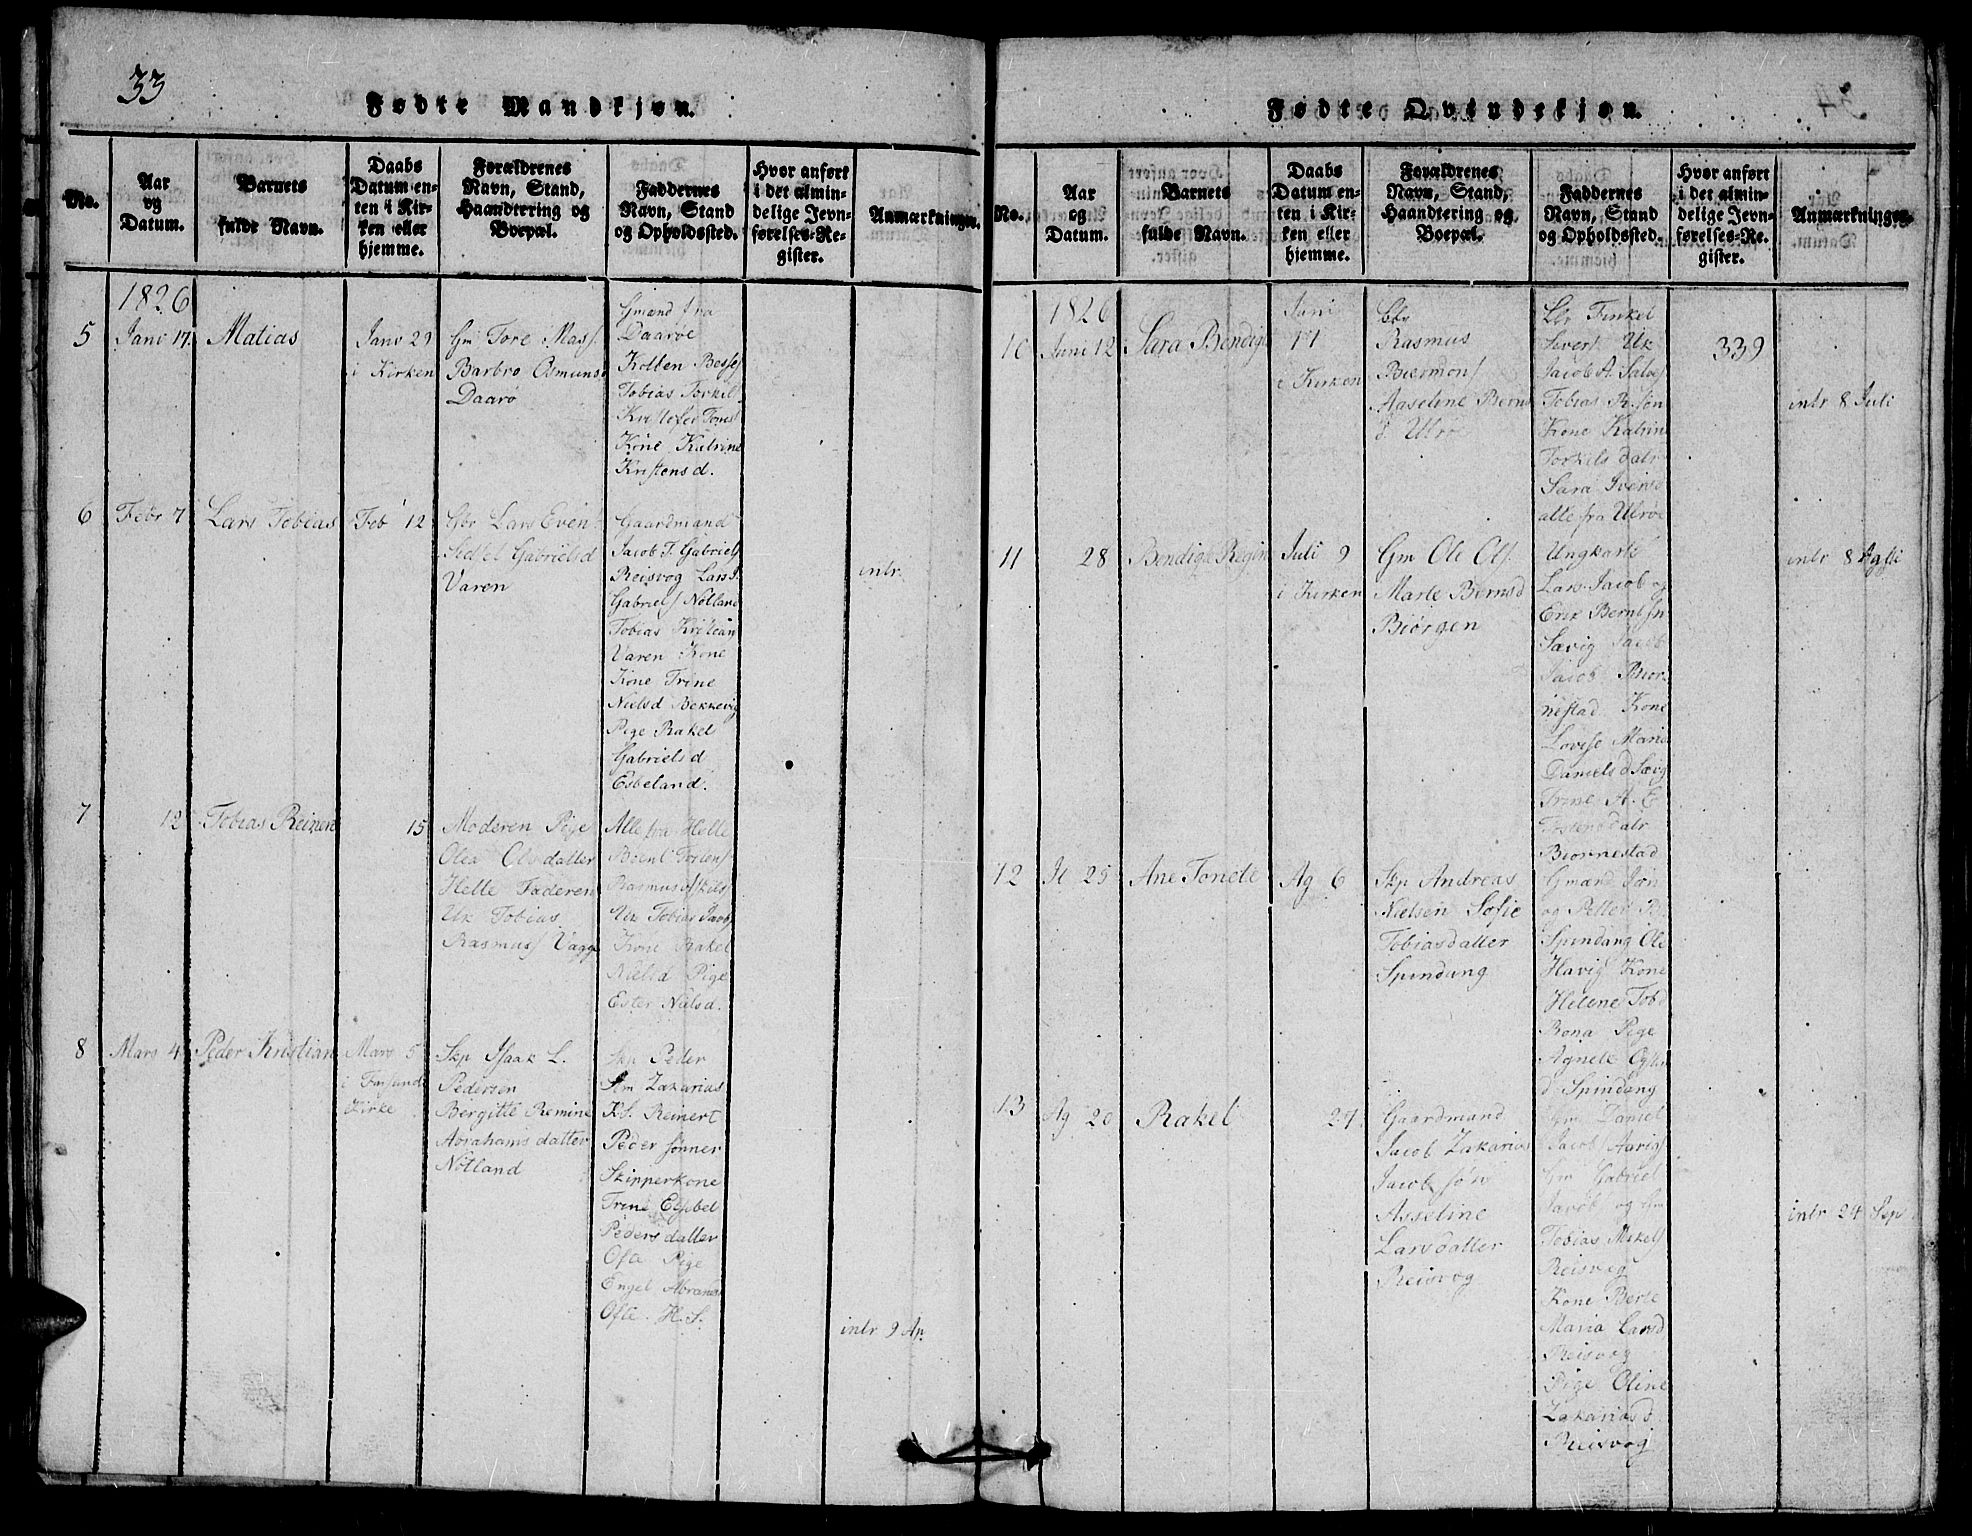 33
Fødte Mandkjøn.
No.
Aar
og
Datum.
Barnets
fulde Navn.
Daabs
Datum en-
ten i Kir-
ken eller
hjemme.
Forældrenes
Navn, Stand,
Haandtering og
Boepæl.
Faddernes
Navn, Stand
og Opholdssted.
Hvor anført
i det almin-
delige Jevn-
førelses-Re-
gister.
Anmærkninger.
1826
5
Janv 17
Matias
Janv 29
i Kirken
Gm Tore Mass.
Barbro Osmuns
Daarø
Gmænd fra
Daarøe
Kolben Besses
Tobias Torkil
Kristofer Tores
Kone Katrine
Kristensd.
6
Febr 7
Lars Tobias
Feb 12
Lars Even
Gabrielsd
Varen
Gaardmand
Jacob T. Gabriels
Reisvog Lars
Gabriels Nøtland
Tobias Kristian
Varen Kone
Kone Trine
Nielsd Bekkevig
Pige Rakel
Gabrielsd
Esbeland.
intr.
7
12
Tobias Reinert
15
Moderen Pige
Olea Olsdatter
Helle Faderen
Uk Tobias
Rasmuss Vagge
Alle fra Helle
Bernt Torlens
Rasmus
Uk Tobias Jacob
Kone Rakel
Nielsd Pige
Ester Nielsd.
8
Mars 4
Peder Kristian
Mars 5
i Farsunds
Kirke
Skp Isaak L.
Pedersen
Bergitte Remine
Abrahamsdatter
Nøtland
Skp Peder
Zakarias
Ks. Reinert
Peder sønner
Skipperkone
Trine Elssbet
Pedersdatter
Ofte Pige
Engel Abrams
Ofte. H. S.
intr 9 Ap.
Fødte Qvindekjøn.
No.
Aar
og
Datum.
Barnets
fulde Navn.
Daabs
Datum en-
ten i Kir-
ken eller
hjemme.
Forældrenes
Navn, Stand,
Haandtering og
Boepæl.
Faddernes
Navn, Stand
og Opholdssted.
Hvor anført
i det almin-
delige Jevn-
førelses-Re-
gister.
Anmærkninger.
1826
10
Juni 12
Sara Bendigt
Juni
17
i Kirken
Rasmus
Biermons
Aaseline Berns
d. Ulrøe
Finkel
Sivert Uk
Jacob A. Salves
Tobias R. søn
Kone Katrin
Torkilsdatr
Sara Ivensd
alle fra Ulrøe
339
intr 8 Juli
11
28
Bendigte Regin
Juli 9
i Kirken
Gm Ole Ols.
Marte Bernsd
Biørgen
Ungkarle
Lars Jacob og
Erik Bernt sn
Sævig Jacob
Jacob Biør-
nestad Kone
Lovise Maria
Danielsd Sævig
Trine A. E
Torstensdatr
Biørnestad
intr 8 Ag
12
Jl 25
Ane Tonete
Ag 6
Skp Andreas
Nielsen Sofie
Tobiasdatter
Spindang
Gmænd Jøn
og Petter
Spindang Ole
Havig Kone
Helene Tobd
Rona Pige
Agnete
d Spindang
13
Ag 20
Rakel
27
Gaardmand
Jacob Zakarias
Jacob søn
Asseline
Larsdatter
Reisvog
Gm Daniel
Jacob
Gm Gabriel
Jacob og Gm
Tobias Mikels
Reisvog
Kone Berte
Maria Larsd
Reisvog
Pige Oline
Zakariasd
Reisvog
intr 24 Sep